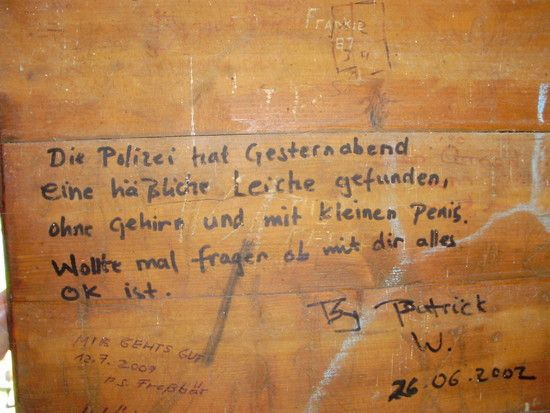 Frankie
87
Die Polizei hat Gesternabend
eine häßliche Leiche gefunden,
ohne Gehirn und mit kleinen Penis.
Wollte mal fragen ob mit dir alles
OK ist.
By Patrick
W.
26.06.2002
MIR GEHTS GUT
12.7.2009
P.S. Freßbär